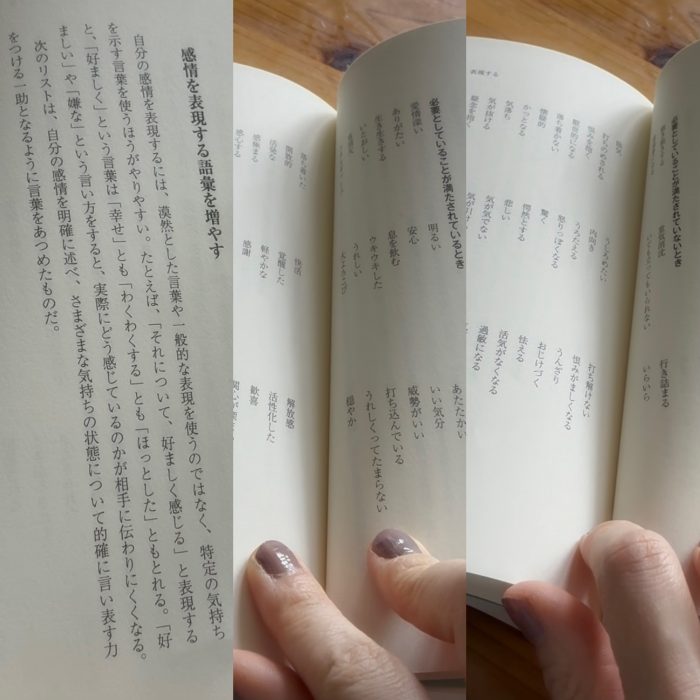 感情を表現する語彙を増やす
自分の感情を表現するには、漠然とした言葉や一般的な表現を使うのではなく、特定の気持ち
を示す言葉を使うほうがやりやすい。たとえば、「それについて、好ましく感じる」と表現する
と、「好ましく」という言葉は「幸せ」とも「わくわくする」とも「ほっとした」ともとれる。「好
ましい」や「嫌な」という言い方をすると、実際にどう感じているのかが相手に伝わりにくくなる。
次のリストは、自分の感情を明確に述べ、さまざまな気持ちの状態について的確に言い表す力
をつける一助となるように言葉をあつめたものだ。
必要としていることが満たされているとき
愛情深い
ありがたい
生き生きする
いとおしい
明るい
安心
息を飲む
ウキウキした
うれしい
あたたかい
いい気分
威勢がいい
打ち込んでいる
うれしくってたまらない
穏やか
落ち着いた
開放的
活発な
感極まる
感心する
快活
覚醒した
軽やかな
感謝
解放感
活性化した
歓喜
必要としていることが満たされていないとき
意気消沈
いてもたってもいられない
行き詰まる
いらいら
表現する
打ちのめされる
恨みを抱く
厭世的になる
落ち着かない
懐疑的
かっとなる
気落ち
気が抜ける
疑念を抱く
うしろめたい
内向き
うろたえる
怒りっぽくなる
驚く
愕然とする
悲しい
気が気でない
気が引ける
打ち解けない
恨みがましくなる
うんざり
おじけづく
怯える
活気がなくなる
過敏になる